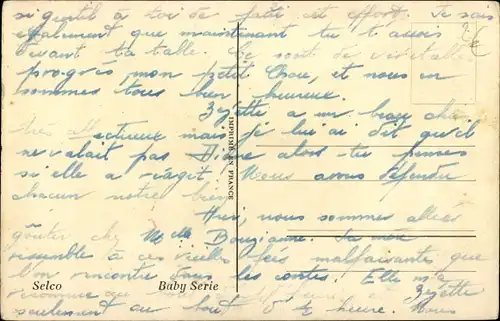 si gentil à toi de faire cet effort. Je sais
également que maintenant tu t'assois
devant ta table. Ce sont de véritables
progrès, mon petit Chou, et nous en
sommes tous bien heureux.
Zézette a un beau chat
très affectueux mais je lui ai dit qu'il
ne valait pas Alors tu penses
si elle a réagit. Nous avons défendu
chacun notre bien
Hier, nous sommes allées
goûter chez Melle Bouzianne. Sa mère
ressemble à ces vieilles fées malfaisantes que
l'on rencontre dans les contes. Elle m'a
Zézette
seulement au bout d' heure. Nous
IMPRIMÉ EN FRANCE
Selco Baby Serie
2€